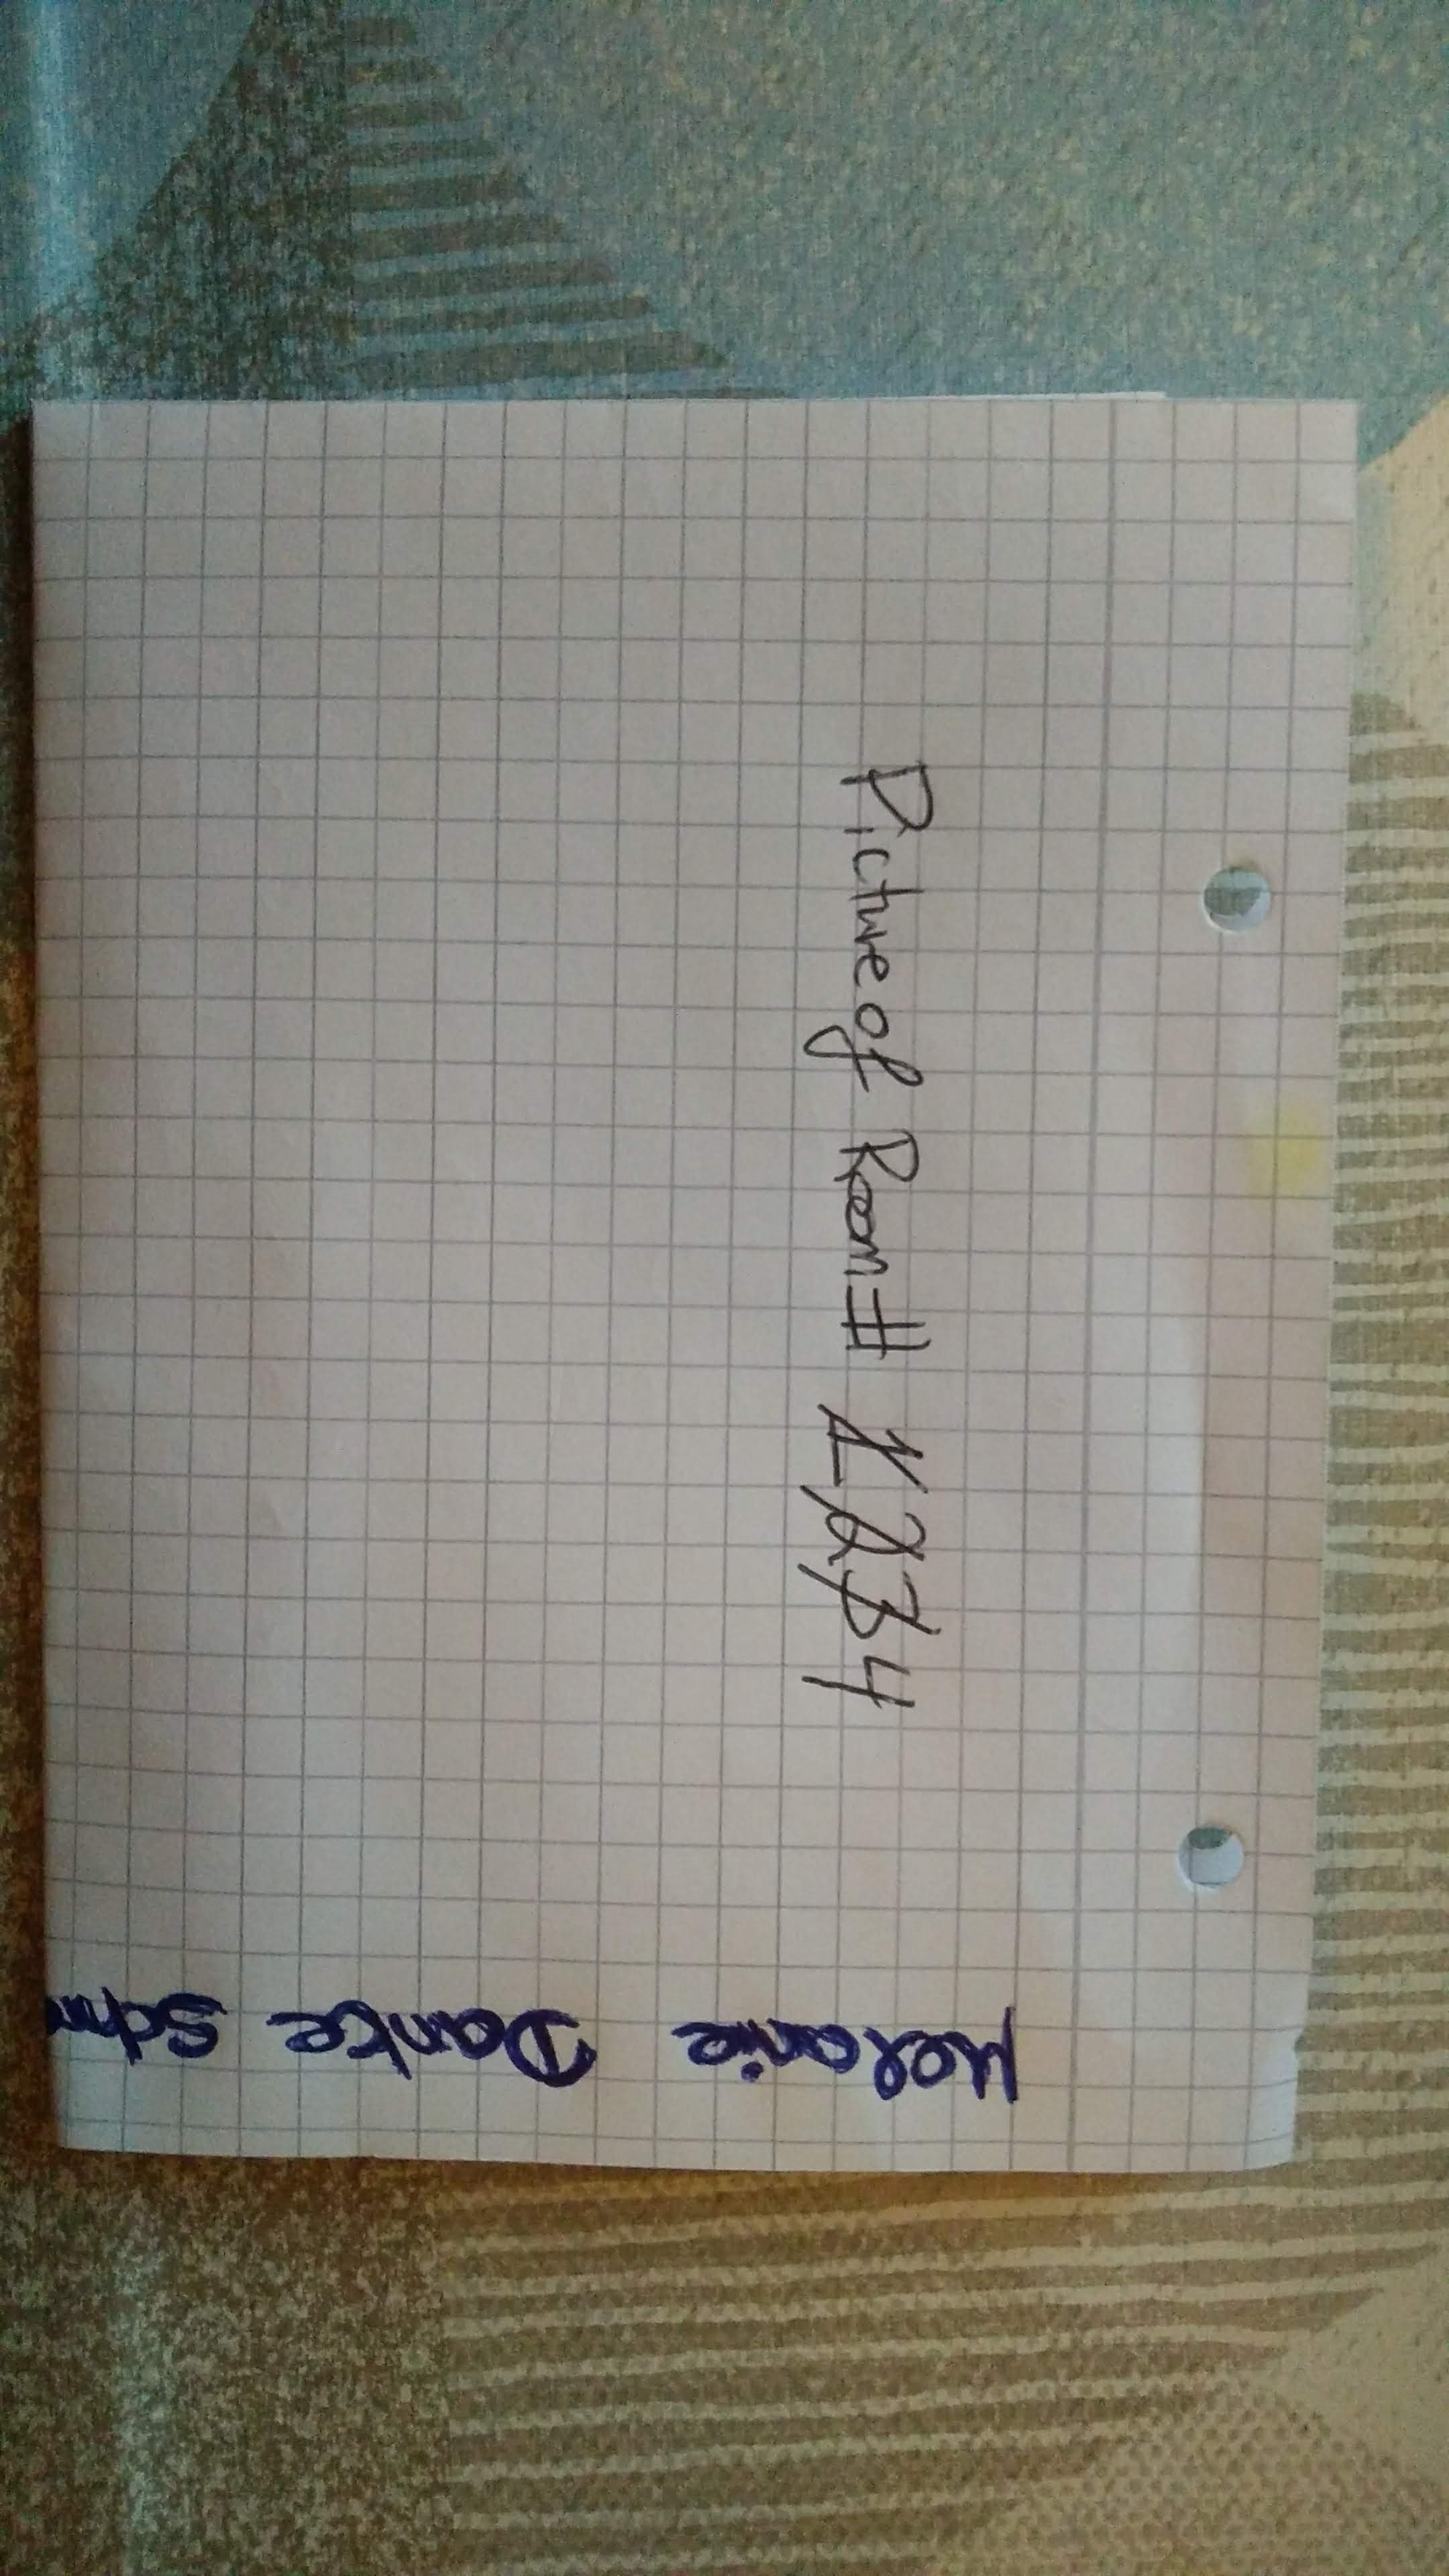 Picture of Room # 1234
Melanie Dante Schm